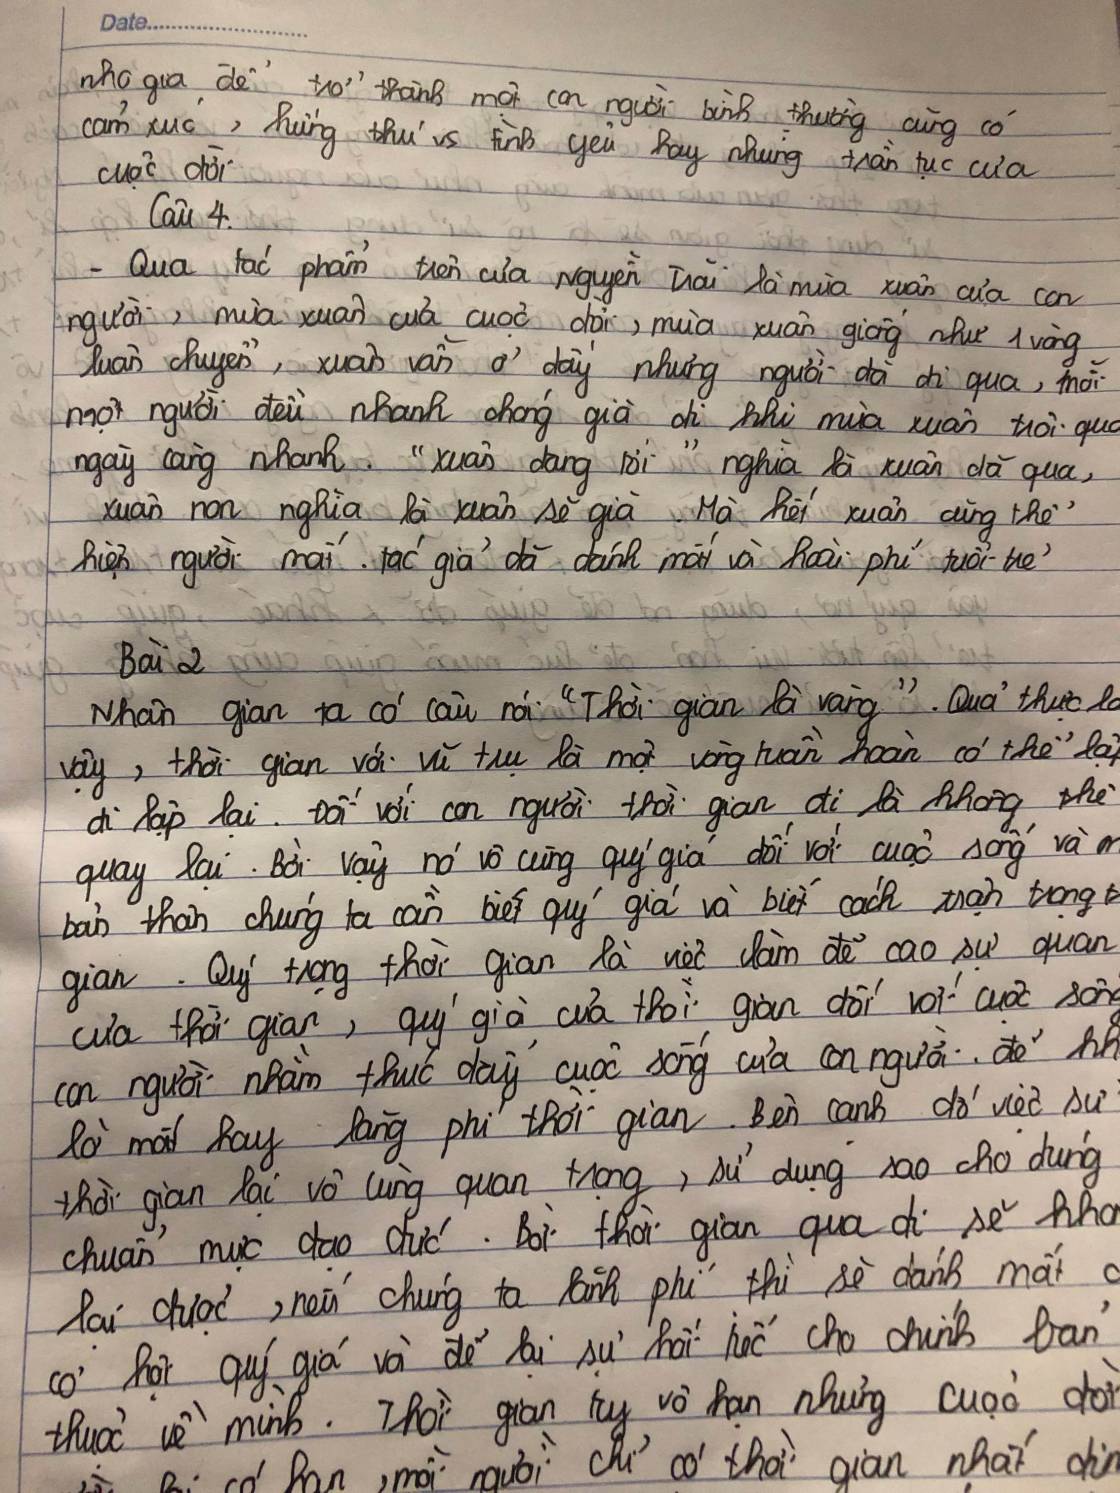 Date
nho gia để trở thành một con người bình thường cũng có
cảm xúc, hứng thú vs tình yêu hay những trần tục của
cuộc đời.
Câu 4.
- Qua tác phẩm trên của Nguyễn Trãi là mùa xuân của con
người, mùa xuân của cuộc đời, mùa xuân giống như 1 vòng
luân chuyển, xuân vẫn ở đấy nhưng người đã đi qua, mỗi
một người đều nhanh chóng già đi khi mùa xuân trôi qua
ngày càng nhanh. "xuân đang tới" nghĩa là xuân đã qua,
xuân non nghĩa là xuân sẽ già. Mà hết xuân cũng thể
hiện người mất. tác giả đã đánh mất và hoài phí tuổi trẻ
Bài 2
Nhân gian ta có câu nói "Thời gian là vàng". Quả thực là
vậy, thời gian với vũ trụ là một vòng tuần hoàn có thể lặp
đi lặp lại. Đối với con người thời gian đi là không thể
quay lại. Bởi vậy nó vô cùng quý giá đối với cuộc sống và
bản thân chúng ta cần biết quý giá và biết cách trân trọng
gian. Quý trọng thời gian là việc làm đề cao sự quan
của thời gian, quý giá của thời gian đối với cuộc sống
con người nhằm thúc đẩy cuộc sống của con người. để
lỡ mất hay lãng phí thời gian. Bên cạnh đó việc sử
thời gian lại vô cùng quan trọng, sử dụng sao cho đúng
chuẩn mực đạo đức. Bởi thời gian qua đi sẽ
lại được, nếu chúng ta lãnh phí thì sẽ đánh mất
cơ hội quý giá và để lại sự hối tiếc cho chính bản
thuộc về mình. Thời gian tuy vô hạn nhưng cuộc đời
có hạn, mỗi người chỉ có thời gian nhất